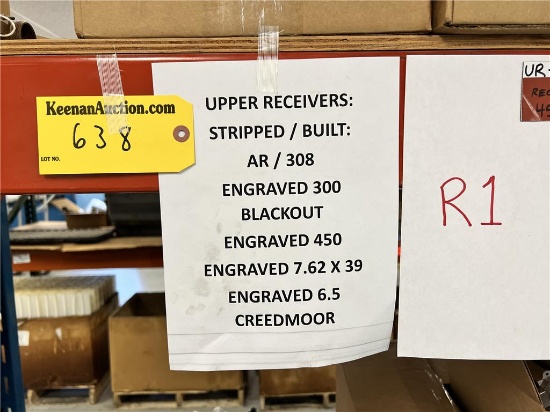 KeenanAuction.com
638
LOT NO.
UPPER RECEIVERS:
STRIPPED / BUILT:
AR / 308
ENGRAVED 300
BLACKOUT
ENGRAVED 450
ENGRAVED 7.62 X 39
ENGRAVED 6.5
CREEDMOOR
R1
UR-